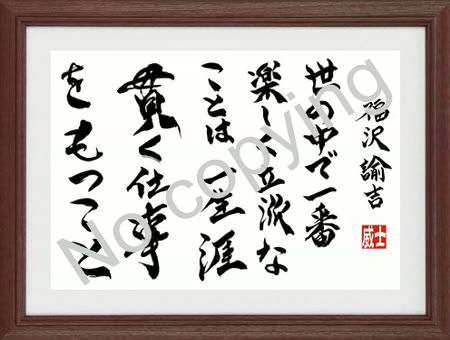 福沢諭吉
威士
世の中で一番
楽しく立派な
ことは一生涯
貫く仕事
をもつこと
No copying